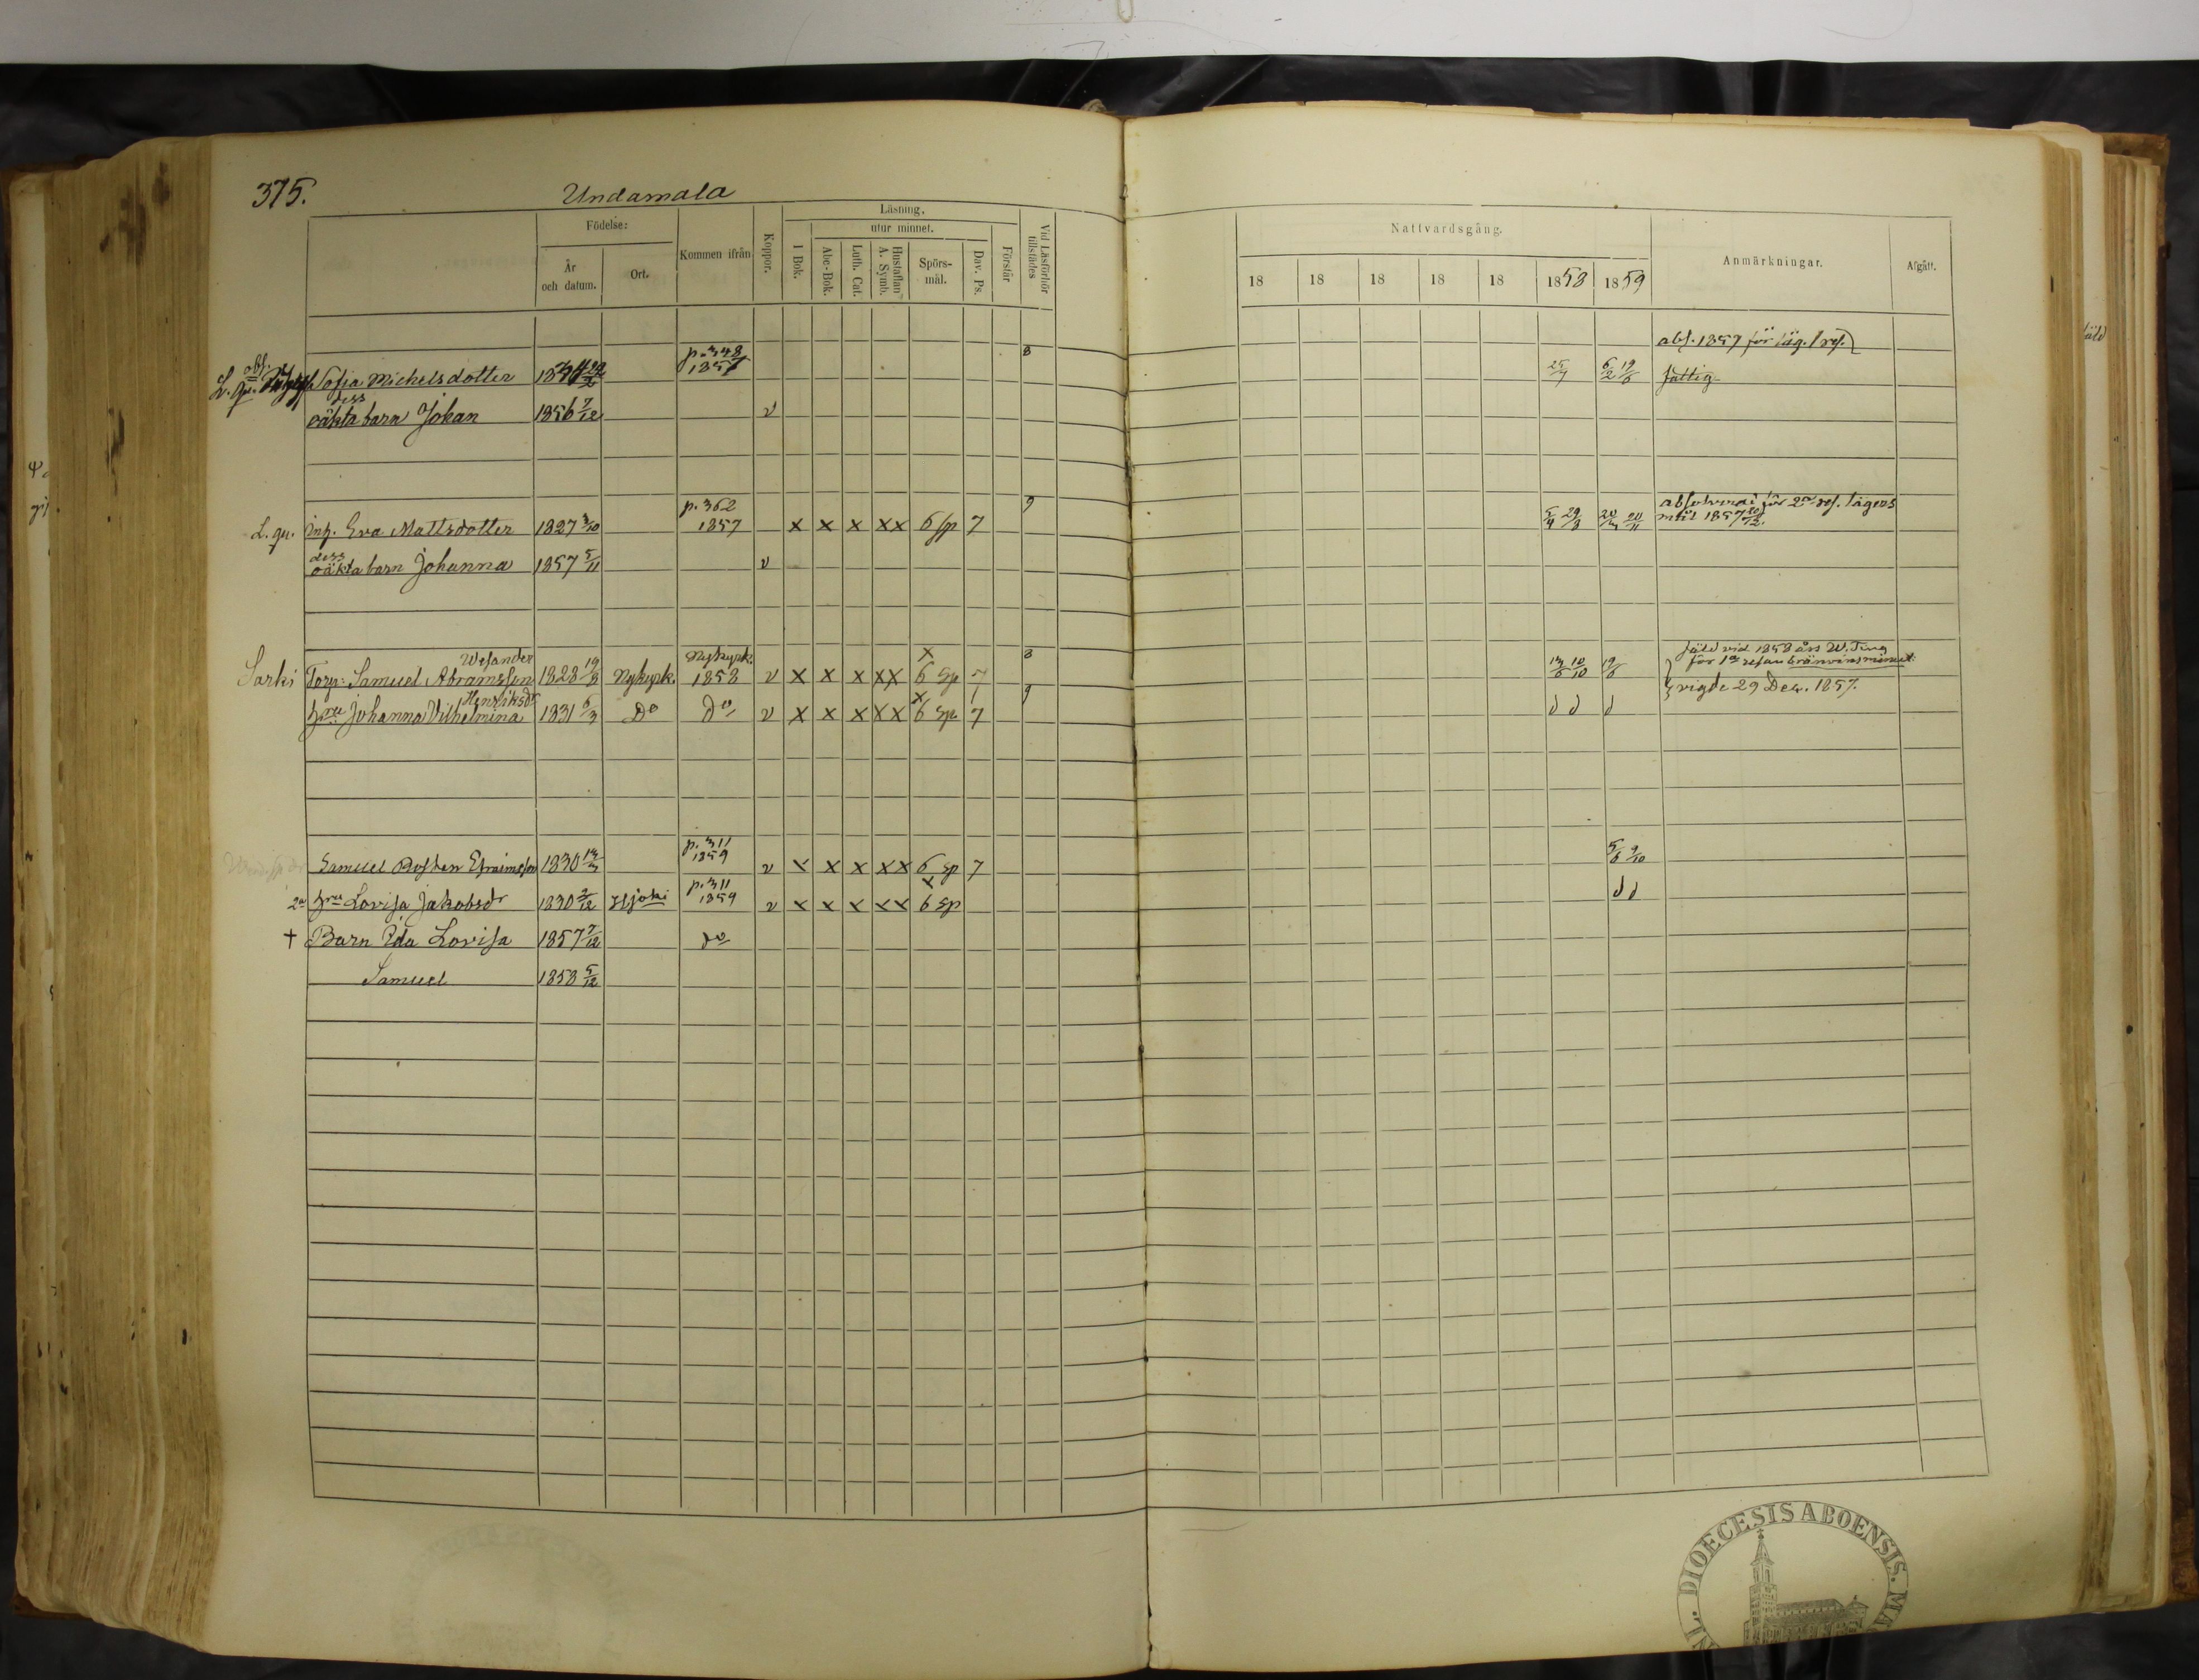 375.
Undamala
Födelse: Kommen ifrån Koppor. Läsning. Vid Läsförhör tillstädes
År och datum. Ort. I Bok. utur minnet. Förstår
Abc-Bok. Luth. Cat. Hustaflan A. Symb. Spörsmål. Dav. Ps.
Nattvardsgång. Anmärkningar. Afgått.
18 18 18 18 18 1858 1859
abs. 1857 för läg. 1 res.
L. qu. Sofia Michelsdotter 22/2 p. 348 1857 8 25/7 6/2 19/6 fattig
dess oäkta barn Johan 1856 7/12 v
L. qu. Inh. Eva Mattsdotter 1827 3/10 p. 362 1857 x x x xx 6 sp 7 9 5/4 29/8 20/11 för 2a res. lägers mål 1857
dess oäkta barn Johanna 1857 5/11 v
Sarki Torp. Samuel Abramsson Wesander 1828 19/8 Nykyrk. Nykyrk. 1858 v x x x xx x 6 sp 7 8 10/10 19/6 fäld vid 1858 års W. Ting för 1a resan bränvinsminut.
hru Johanna Vilhelmina Henriksdr 1831 6/3 Do do v x x x xx x 6 sp 7 9 d d d vigde 29 Dec. 1857.
Samuel Efraimsson 1830 p. 311 1859 v x x x xx 6 sp 7 5/6 9/10
2a hru Lovisa Jakobsdr 1830 2/12 Hjoki p. 311 1859 v x x x xx x 6 sp d d
† Barn Ida Lovisa 1857 7/12 do
Samuel 1858 5/12
DIOECESIS ABOENSIS.